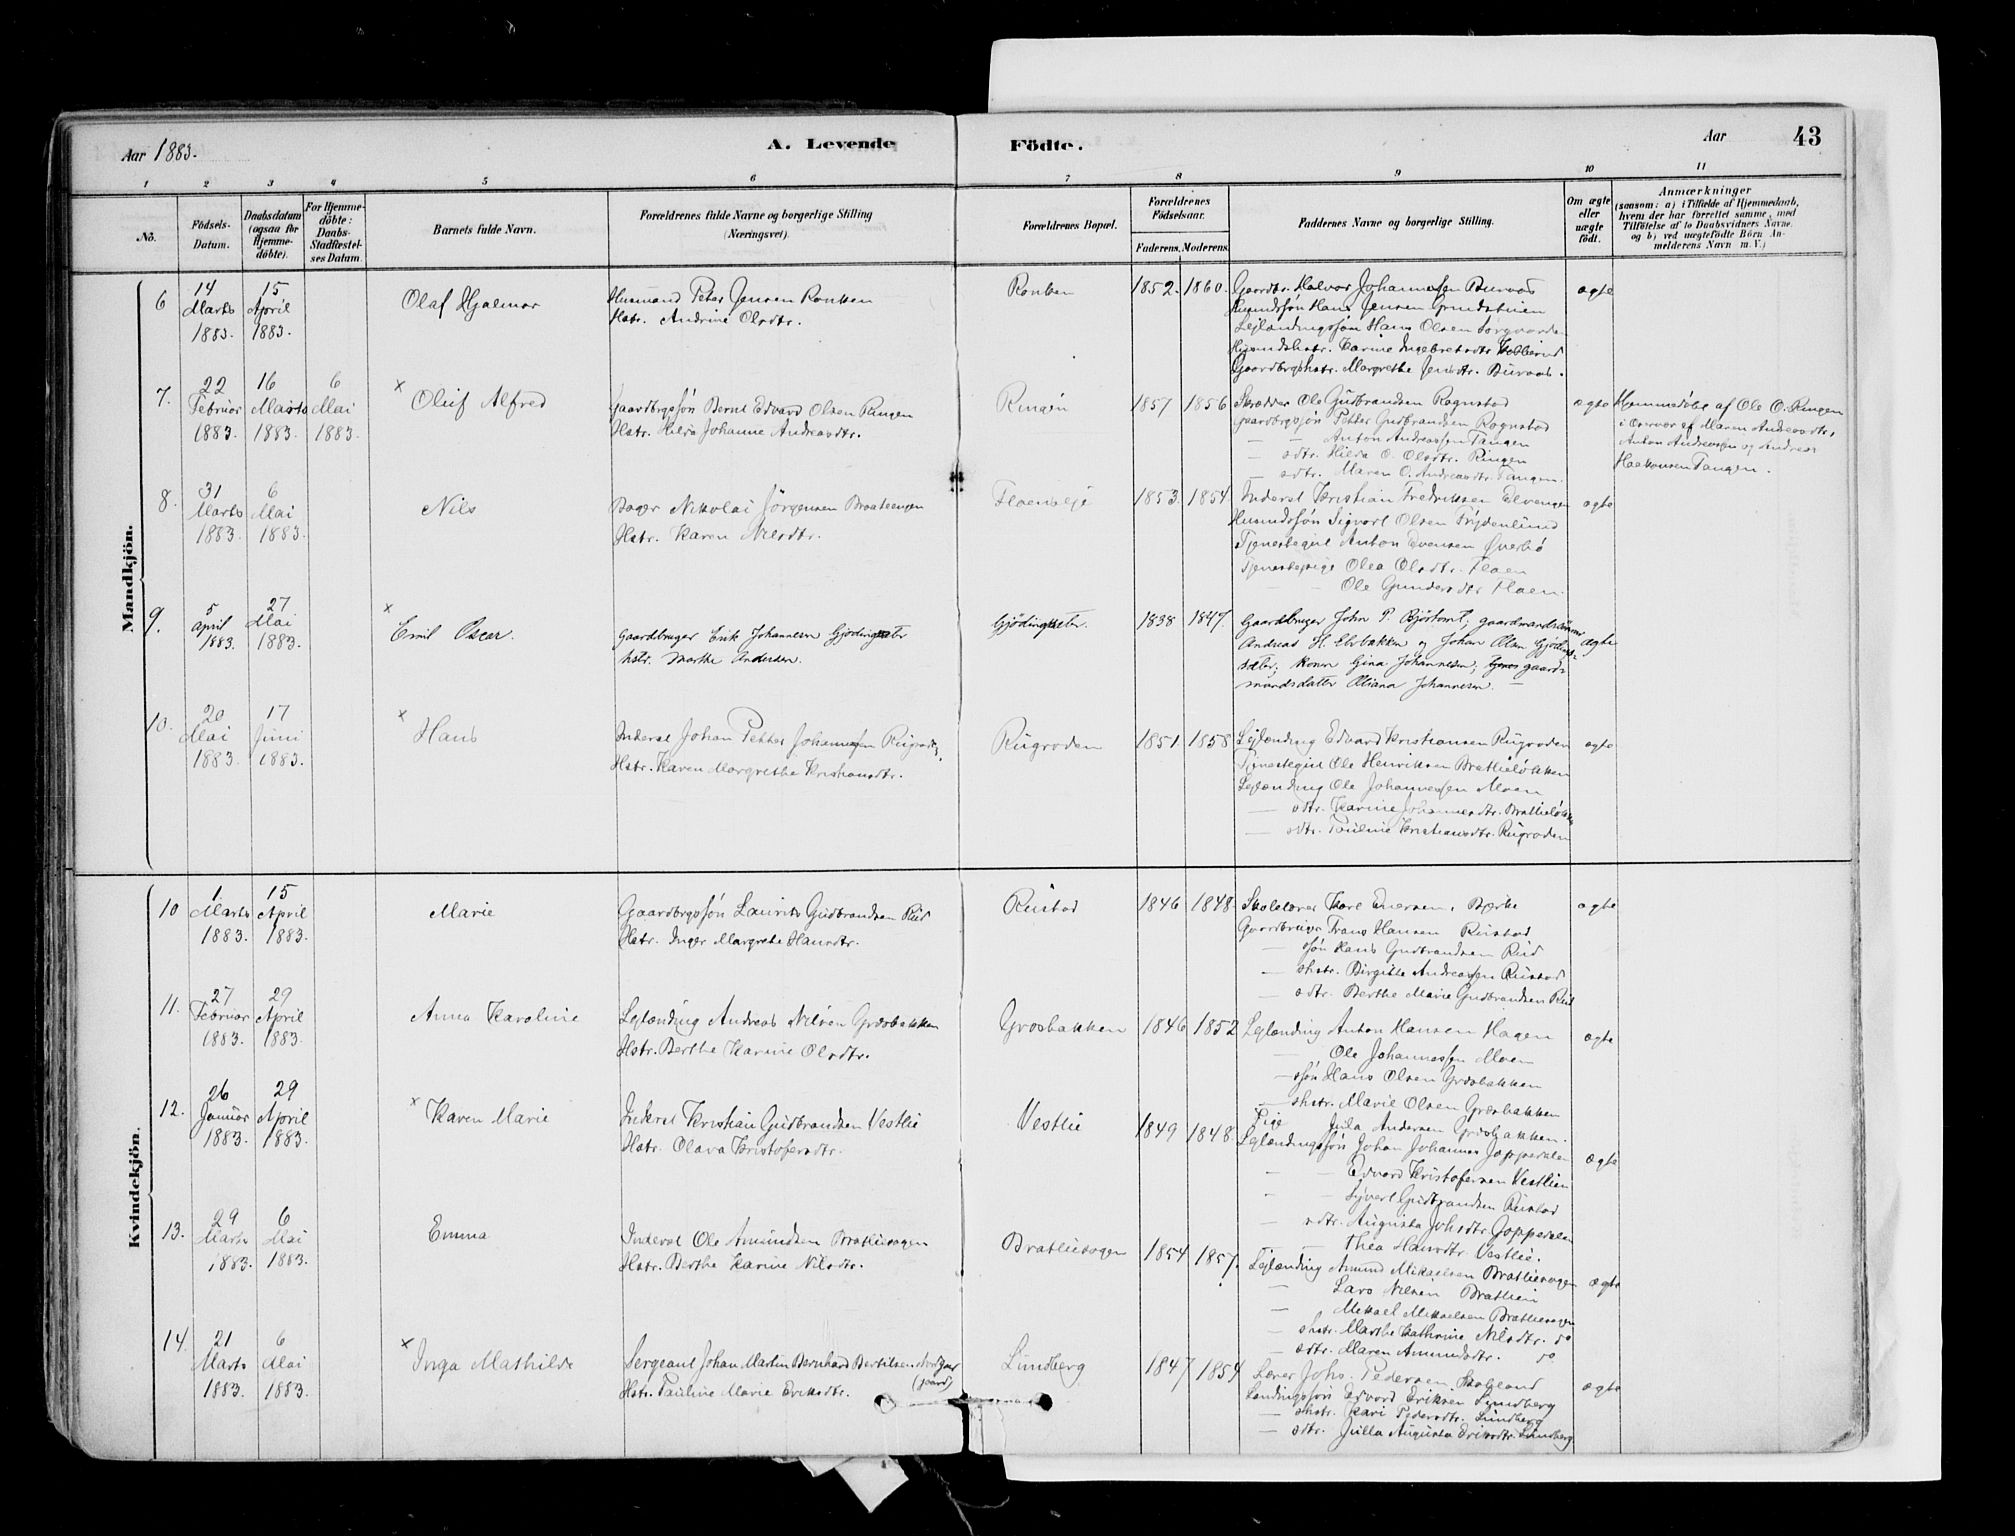 Aar 1883.
A. Levende
Födte.
Aar
43
1 2 3 4 5 6 7 8 9 10 11
No.
Födsels-
Datum.
Daabsdatum
(ogsaa for
Hjemme-
döbte).
For Hjemme-
döbte:
Daabs-
Stadfæstel-
ses Datum.
Barnets fulde Navn.
Forældrenes fulde Navne og borgerlige Stilling
(Næringsvei).
Forældrenes Bopæl.
Forældrenes
Födselsaar.
Faderens. Moderens.
Faddernes Navne og borgerlige Stilling.
Om ægte
eller
uægte
födt.
Anmærkninger
(saasom: a) i Tilfælde af Hjemmedaab,
hvem der har forrettet samme, med
Tilföielse af to Daabsvidners Navne.
og b) ved uægtefödte Börn An-
melderens Navn m. V.)
Mandkjön.
6
14 Marts 1883.
15 April 1883.
Olaf Hjalmar
Husmand Peter Jensen Ronken
Hstr. Andrine Olsdtr.
Ronken
1852. 1860.
Gaardbr. Halvor Johannessen Buraas
Husmdssön Hans Jensen Grindstuen
Leilændingssön Hans Olsen
Husmdshstr. Karine Ingebretsdtr.
Gaardbrgshstr. Margrethe Jensdtr. Buraas.
ægte
7.
22 Februar 1883.
16 Marts 1883.
6 Mai 1883.
× Oluf Alfred
Gaardbrgssön Bernt Edvard Olsen Ringen
Hstr. Hilda Johanne Andreasdtr.
Ringen
1857 1856
Skrædder Ole Gudbrandsen Rognstad
Gaardbrgssön Petter Gudbrandsen Rognstad
— — Anton Andreassen Tangen
— sdtr. Hilda O. Olsdtr. Ringen
— sdtr. Maren O. Andreasdtr. Tangen
ægte
Hjemmedöbt af Ole O. Ringen
i Overvær af Maren Andreasdtr,
Anton Andreassen og Andreas
Haakonsen Tangen.
8.
31 Marts 1883.
6 Mai 1883.
Nils
Bager Nikolai Jörgensen Braateengen
Hstr. Karen Nilsdtr.
Flaenseje
1853. 1854.
Inderst Kristian Fredriksen Elvengen
Husmdssön Sigvart Olsen Frydenlund
Tjenestegut Anton Evensen Överbö
Tjenestepige Olea Olsdtr. Flaen
— Ole Gundersdtr. Flaen.
ægte
9.
5 April 1883.
27 Mai 1883.
× Emil Oscar.
Gaardbruger Erik Johannesen Gjödingsæter
hstr. Marthe Andersen.
Gjödingsæter.
1838 1847.
Gaardbruger John P. Bjöstomt, gaardmandssönner
Andreas H. Elvbakken og Johan Olsen Gjödings-
sæter; Konen Gina Johannesen; gaard-
mandsdatter Oliana Johannesen. —
ægte
10.
20 Mai 1883.
17 Juni 1883.
× Hans
Inderst Johan Petter Johannessen Rugroden,
Hstr. Karen Margrethe Kristiansdtr.
Rugroden
1851. 1858
Leilænding Edvard Kristiansen Rugroden
Tjenestegut Ole Henriksen Bratlielökken
Leilænding Ole Johannessen Moen
— sdtr. Karine Johannesdtr. Bratlielökken
— sdtr. Pauline Kristiansdtr. Rugroden
ægte
Kvindekjön.
10
1 Marts 1883.
15 April 1883.
Marie
Gaardbrgssön Laurits Gudbrandsen Rud
Hstr. Inger Margrethe Hansdtr.
Rustad
1846 1848.
Skolelærer Karl Enersen, Bjerke
Gaardbruger Frans Hansen Rustad
— ssön Hans Gudbrandsen Rud
— shstr. Birgitte Andreassen Rustad
— sdtr. Berthe Marie Gudbrandsen Rud
ægte
11.
27 Februar 1883.
29 April 1883.
Anna Karoline
Leilænding Andreas Nilsen Græsbakken
Hstr. Berthe Karine Olsdtr.
Græsbakken
1846 1852
Leilænding Anton Hansen Hagen
— Ole Johannessen Moen
— ssön Hans Olsen Græsbakken
— shstr. Marie Olsen Græsbakken
Pige Jula Andersen Græsbakken.
ægte
12.
26 Januar 1883.
29 April 1883.
× Karen Marie
Inderst Kristian Gudbrandsen Vestlie
Hstr. Olava Kristofersdtr.
Vestlie
1849 1848.
Leilændingssön Johan Johannes. Joppedalen
— — Edvard Kristofersen Vestlien
— — Syvert Gudbrandsen Rustad
— sdtr. Augusta Johsdtr. Joppedalen
— Thea Hansdtr. Vestlie.
ægte
13.
29 Marts 1883.
6 Mai 1883.
Emma
Inderst Ole Amundsen Bratliesagen
Hstr. Berthe Karine Nilsdtr.
Bratliesagen
1854 1857.
Leilænding Amund Mikaelsen Bratliesagen
— Lars Nilsen Bratlien
— Mikael Mikaelsen Bratliesagen
— shstr. Marthe Kathrine Nilsdtr. do
— sdtr. Maren Amundsdtr. do
ægte
14.
21 Marts 1883.
6 Mai 1883.
× Inga Mathilde
Sergeant Johan Martin Bernhard Bertilsen
Hstr. Pauline Marie Eriksdtr.
Lundberg
1847 1854
Lærer Johs. Pedersen,
Landingssön Edvard Eriksen Lundberg
— shstr. Kari Pedersdtr. Lundberg
— sdtr. Julla Augusta Eriksdtr. Lundberg
ægte